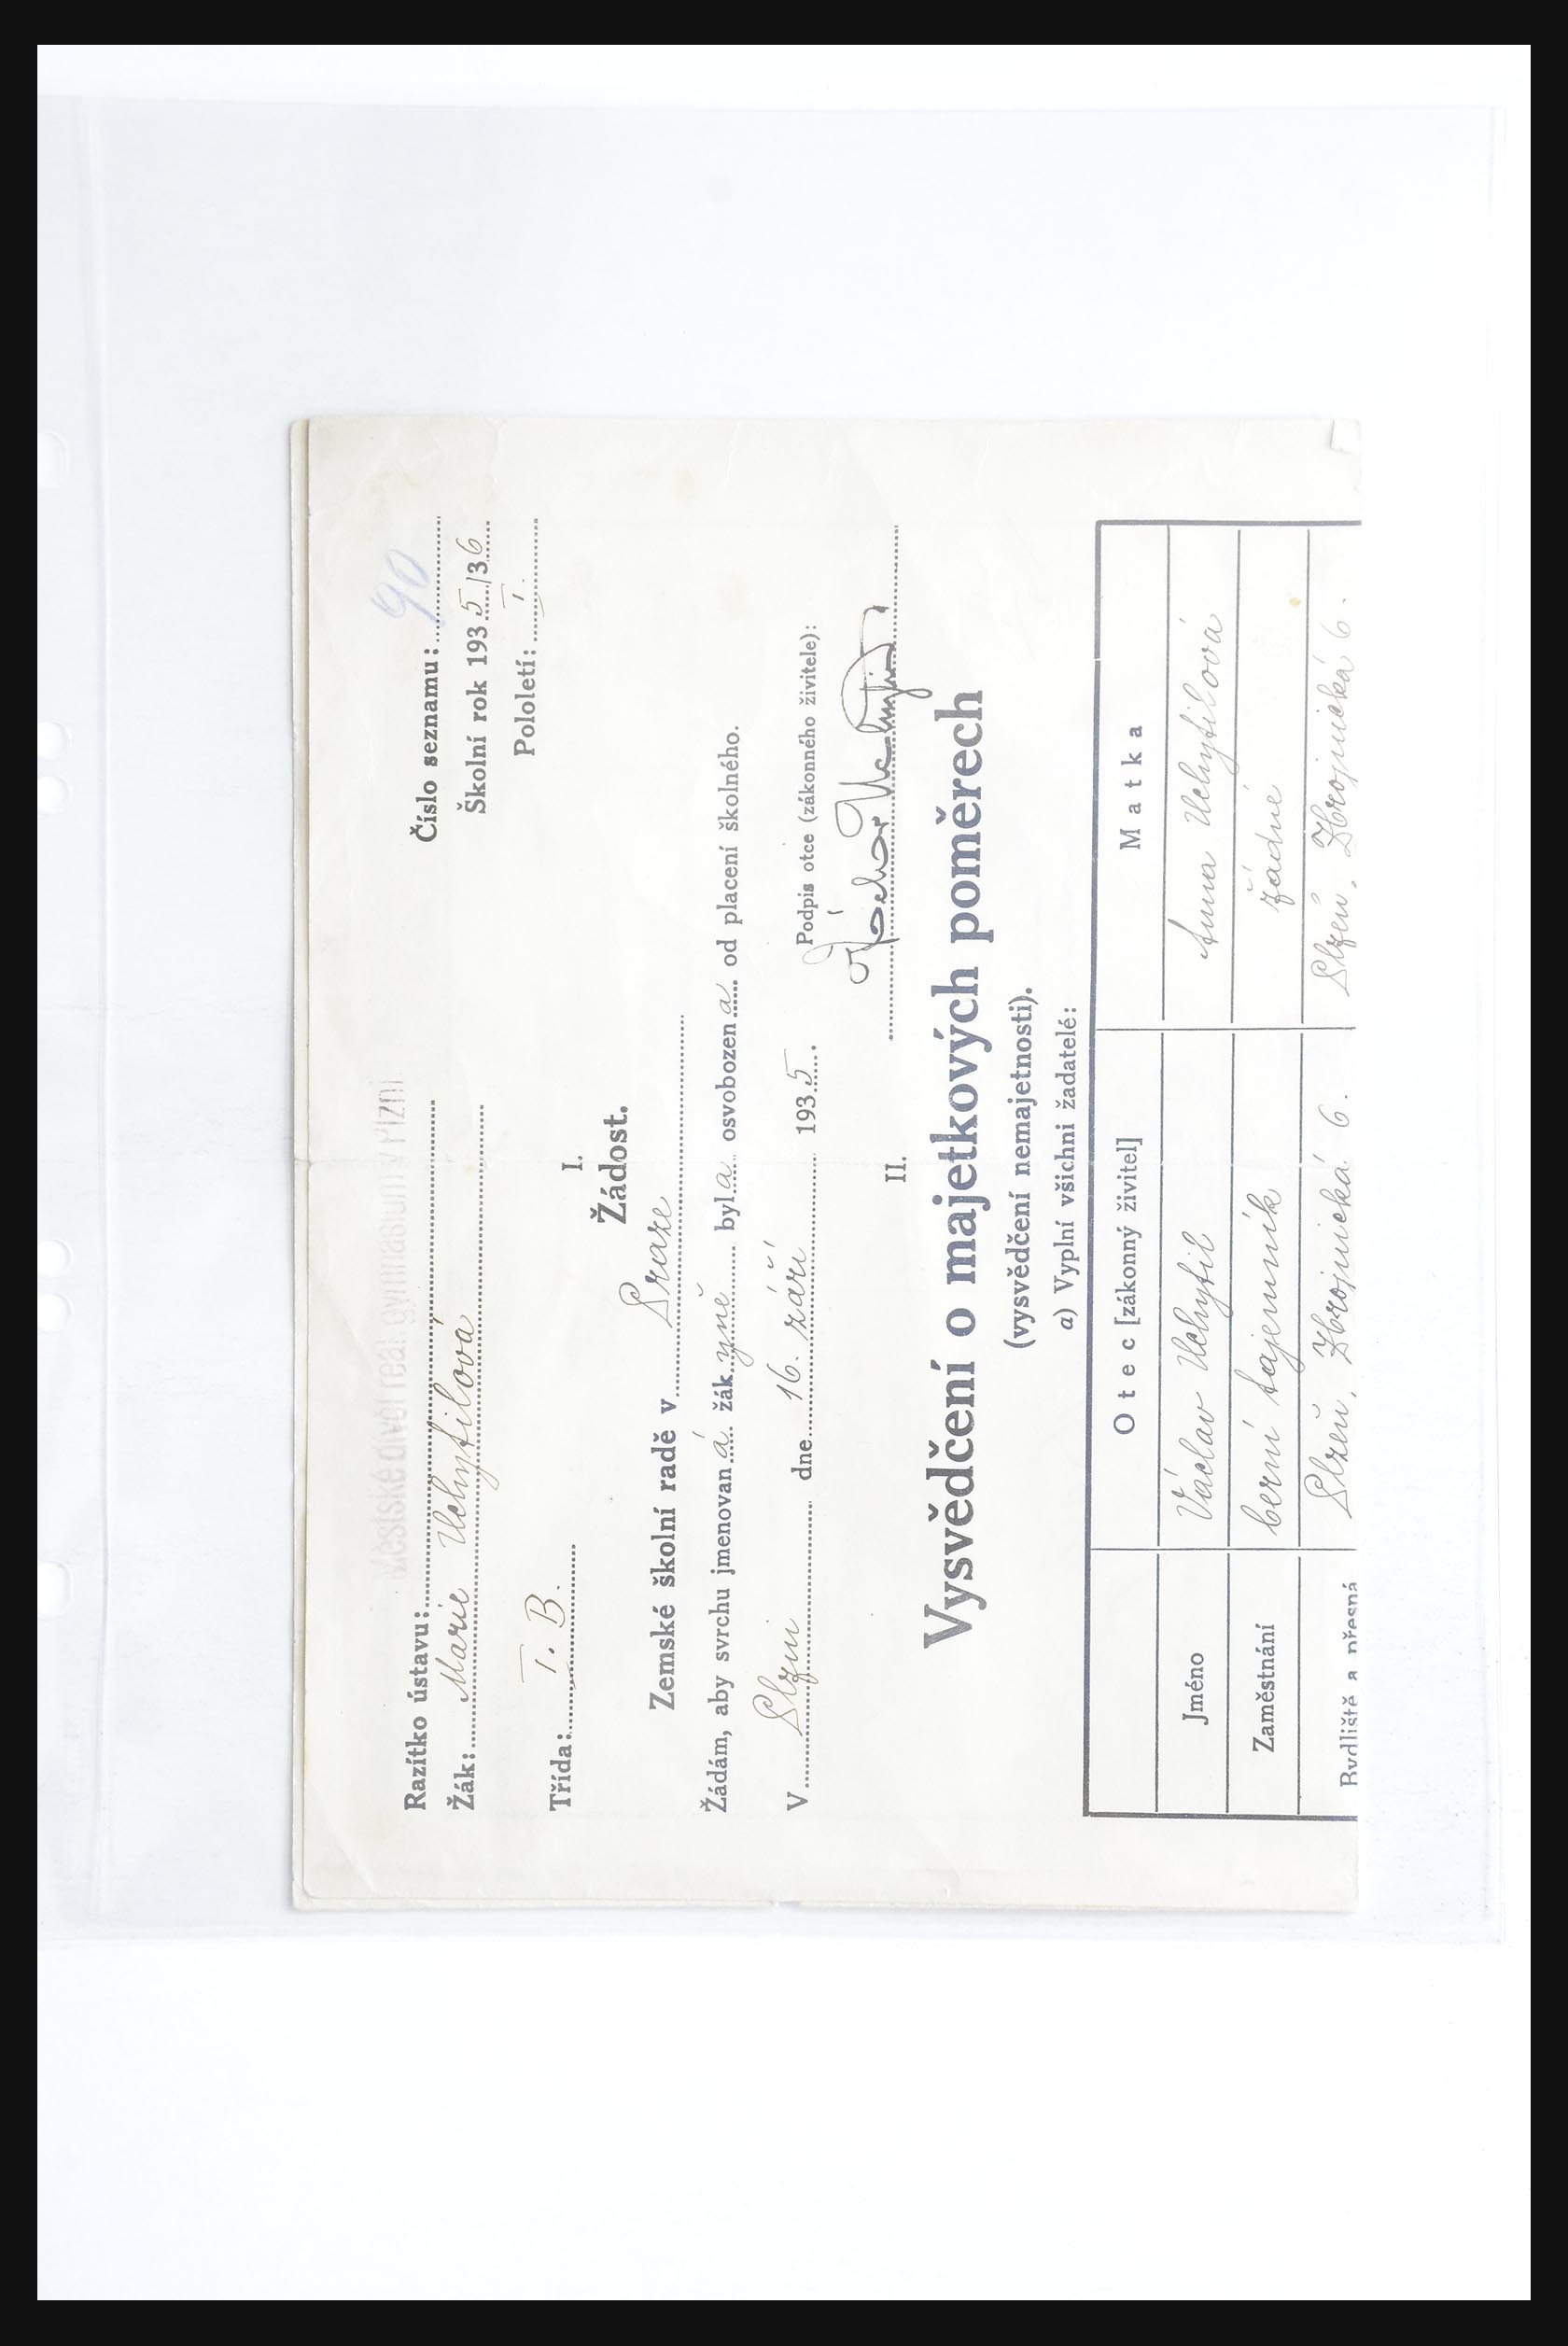 Městské dívčí reál. gymnasium v Plzni.
Razítko ústavu:
Číslo seznamu: 90
Žák: Marie Uchytilová
Školní rok 1935/36
Pololetí: I.
Třída: I. B.
I.
Žádost.
Zemské školní radě v Praze
Žádám, aby svrchu jmenovaná žákyně byla osvobozena od placení školného.
V Plzni dne 16. září 1935.
Podpis otce (zákonného živitele):
Václav Uchytil
II.
Vysvědčení o majetkových poměrech
(vysvědčení nemajetnosti).
a) Vyplní všichni žadatelé:
Otec [zákonný živitel] Matka
Jméno Václav Uchytil Anna Uchytilová
Zaměstnání berní tajemník žádné
Bydliště a přesná Plzeň, Zbrojnická 6. Plzeň, Zbrojnická 6.